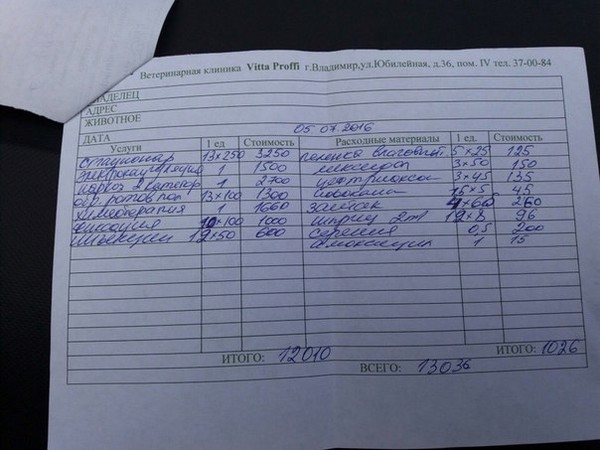 Ветеринарная клиника Vitta Proffi г.Владимир,ул.Юбилейная, д.36, пом. IV тел. 37-00-84
ВЛАДЕЛЕЦ
АДРЕС
ЖИВОТНОЕ
ДАТА 05 07.2016
Услуги 1 ед. Стоимость Расходные материалы 1 ед. Стоимость
стационар 13×250 3250 пеленка 5×25 125
1 1500 3×50 150
наркоз 2 категор 1 2700 3×45 135
обр. ротов пол 13×100 1300 15×5 45
химиотерапия 1 1660 260
10×100 1000 шприц 2ml 12×8 96
инъекции 12×50 600 серения 0,5 200
1 15
ИТОГО: 12010 ИТОГО: 1026
ВСЕГО: 13036